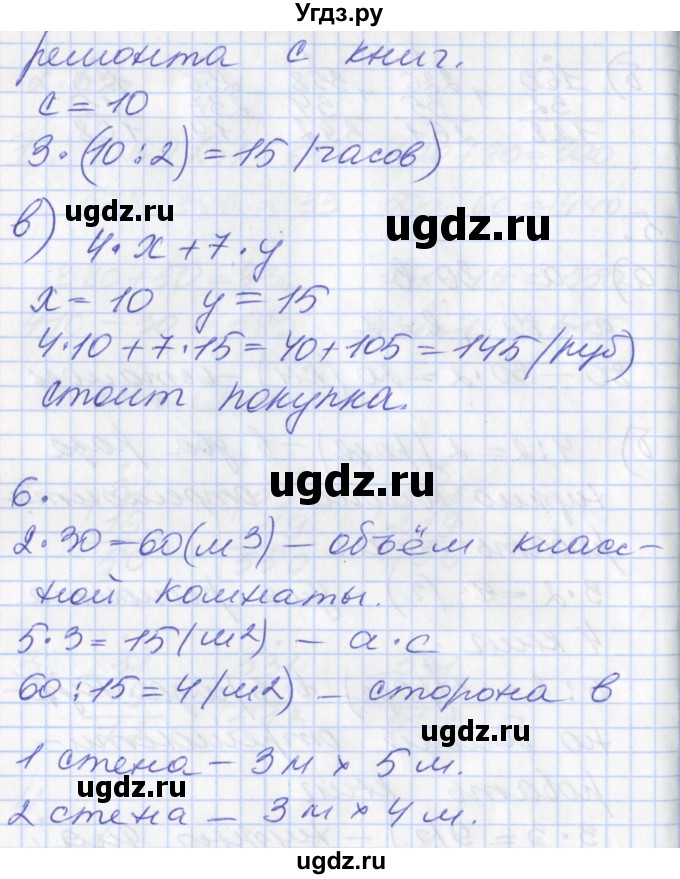 Угдз.ру
ремонта с книг.
с = 10
3·(10:2)=15 (часов)
в) 4·x+7·y
ugdz.ru
ugdz.ru
x=10 y=15
4·10+7·15=40+105=145 (руб)
стоит покупка.
ugdz.ru
6.
2·30=60(м3) – объём класс-
ной комнаты.
5·3=15(м2) – а·с
60:15=4(м2) – сторона в
ugdz.ru
1 стена – 3м × 5м.
ugdz.ru
2 стена – 3м × 4м.
ugdz.ru